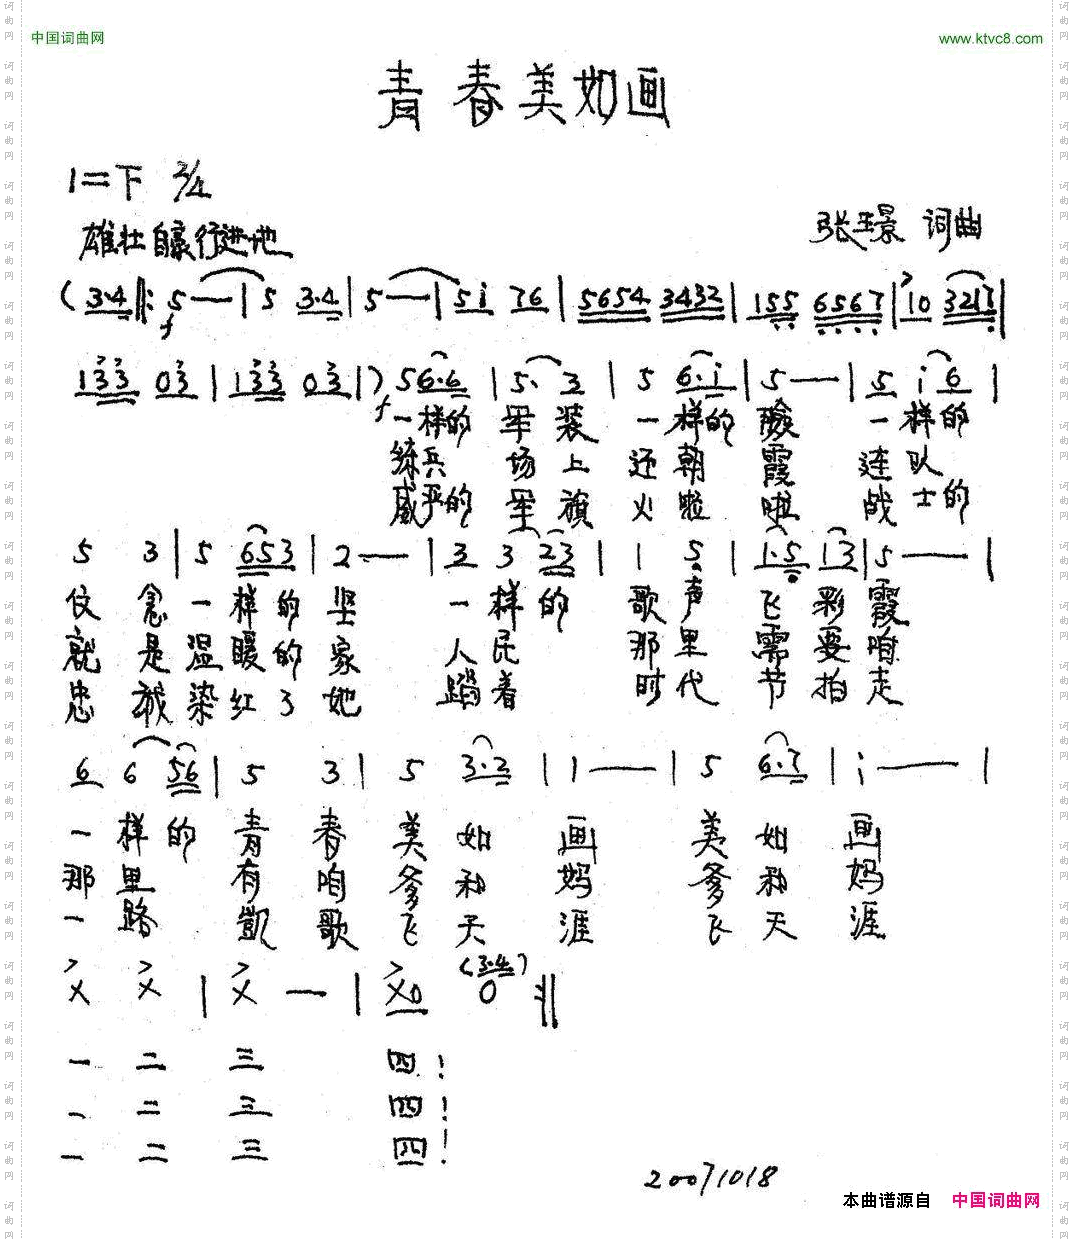 中国词曲网 www.ktvc8.com
青春美如画
1=下 2/4
雄壮自豪行进地
张璟 词曲
(3·4‖: 5—|5 3·4|5—|5i 76|5654 3432|155 6567|10 3217|
133 03|133 03|) 566·6|5· 3|5 6·i|5—|5 i6|
f
一样的军装一样的脸一样的
练兵场上还朝霞连队
威严的军旗火啦啦战士的
5 3|5 653|2—|3 3 23|1 5|1·5 13|5—|
仗念一样的坚一样的歌声飞彩霞
就是温暖的家人民那里需要咱
忠诚染红了她踏着时代节拍走
6 6 56|5 3|5 3·2|1—|5 6·7|i—|
一样的青春美如画美如画
那里有咱爹和妈爹和妈
一路凯歌飞天涯飞天涯
(3·4)
X X|X —|X0 0:‖
一二三四!
一二三四!
一二三四!
20071018
本曲谱源自 中国词曲网